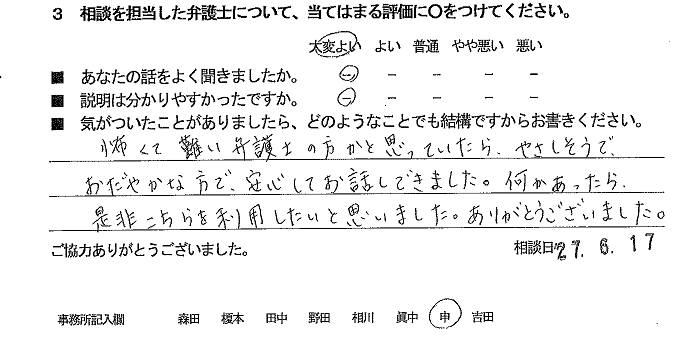 3 相談を担当した弁護士について、当てはまる評価に〇をつけてください。
大変よい よい 普通 やや悪い 悪い
■ あなたの話をよく聞きましたか。 － － － － －
■ 説明は分かりやすかったですか。 － － － － －
■ 気がついたことがありましたら、どのようなことでも結構ですからお書きください。
怖くて難い弁護士の方かと思っていたら、やさしそうで、
おだやかな方で、安心してお話しできました。何かあったら、
是非こちらを利用したいと思いました。ありがとうございました。
ご協力ありがとうございました。 相談日 27.6.17
事務所記入欄 森田 榎本 田中 野田 相川 眞中 申 吉田